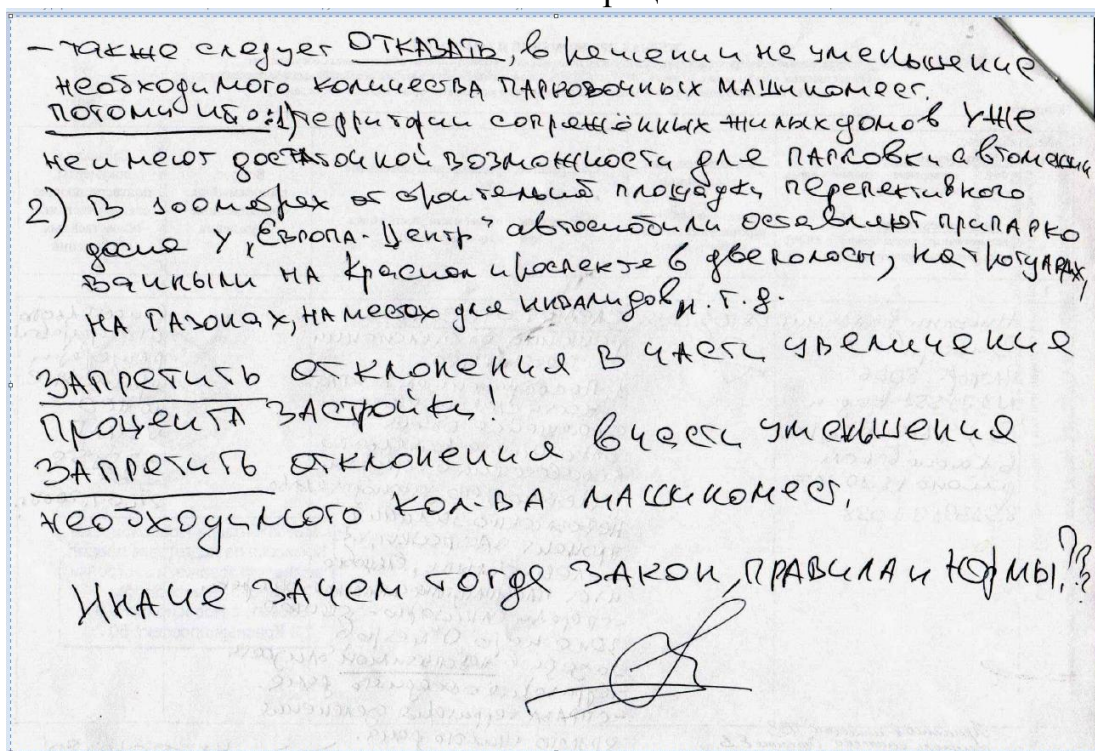 - также следует ОТКАЗАТЬ, в решении на уменьшение
необходимого количества ПАРКОВОЧНЫХ МАШИНОМЕСТ.
ПОТОМУ ЧТО: 1) территории сопряжённых жилых домов УЖЕ
не имеют достаточной возможности для ПАРКОВКИ автомашин
2) В 100 метрах от строительной площадки перспективного
дома у "ЕВРОПА Центр" автомобили оставляют припарко
ванными НА Красном проспекте в две полосы, на тротуарах,
НА ГАЗОНАХ, на местах для инвалидов и т.д.
ЗАПРЕТИТЬ отклонения в части увеличения
ПРОЦЕНТА ЗАстройки!
ЗАПРЕТИТЬ отклонения в части уменьшения
необходимого КОЛ-ВА машиномест.
ИНАЧЕ ЗАЧЕМ тогда ЗАКОН, ПРАВИЛА и НОРМЫ!??